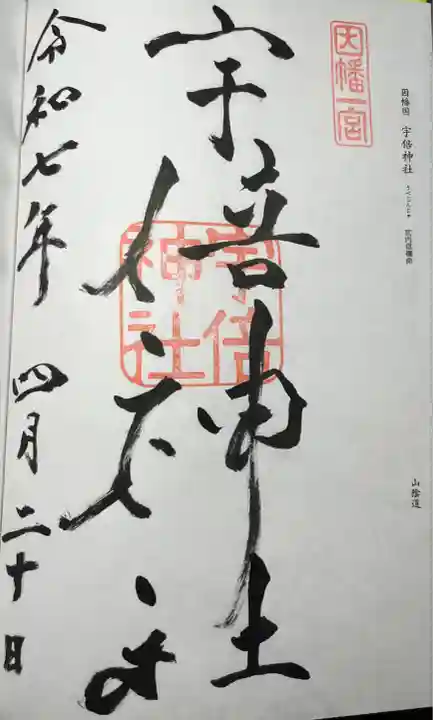 因幡一宮
因幡国 宇倍神社 うべじんじゃ
山陰道
宇倍神社
宇倍神社
令和七年 四月二十日